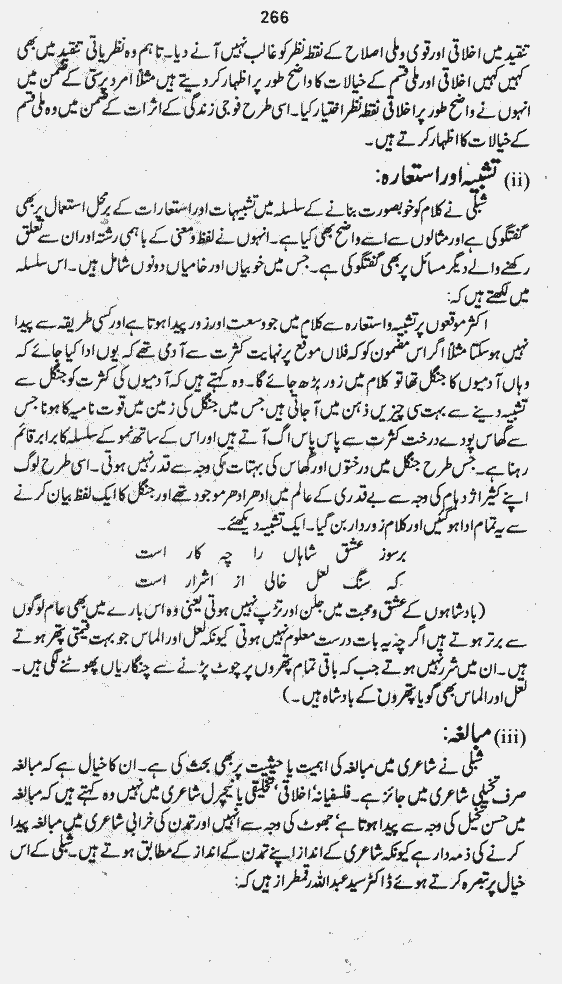 266
تنقید میں اخلاقی اور قومی و ملی اصلاح کے نقطہ نظر کو غالب نہیں آنے دیا۔ تاہم وہ نظریاتی تنقید میں بھی
کہیں کہیں اخلاقی اور ملی قسم کے خیالات کا واضح طور پر اظہار کر دیتے ہیں مثلاً امرد پرستی کے ضمن میں
انہوں نے واضح طور پر اخلاقی نقطہ نظر اختیار کیا۔ اسی طرح فوجی زندگی کے اثرات کے ضمن میں وہ ملی قسم
کے خیالات کا اظہار کرتے ہیں۔
(ii) تشبیہ اور استعارہ:
شبلی نے کلام کو خوبصورت بنانے کے سلسلہ میں تشبیہات اور استعارات کے برمحل استعمال پر بھی
گفتگو کی ہے اور مثالوں سے اسے واضح بھی کیا ہے۔ انہوں نے لفظ و معنی کے باہمی رشتہ اور ان سے تعلق
رکھنے والے دیگر مسائل پر بھی گفتگو کی ہے۔ جس میں خوبیاں اور خامیاں دونوں شامل ہیں۔ اس سلسلہ
میں لکھتے ہیں کہ:
اکثر موقعوں پر تشبیہ و استعارہ سے کلام میں جو وسعت اور زور پیدا ہوتا ہے اور کسی طریقہ سے پیدا
نہیں ہو سکتا مثلاً اگر اس مضمون کو کہ فلاں موقع پر نہایت کثرت سے آدمی تھے کہ یوں ادا کیا جائے کہ
وہاں آدمیوں کا جنگل تھا تو کلام میں زور بڑھ جائے گا۔ وہ کہتے ہیں کہ آدمیوں کی کثرت کو جنگل سے
تشبیہ دینے سے بہت سی چیزیں ذہن میں آ جاتی ہیں جس میں جنگل کی زمین میں قوت نامیہ کا ہونا جس
سے گھاس پودے درخت کثرت سے پاس پاس اگ آتے ہیں اور اس کے ساتھ نمو کے سلسلہ کا برابر قائم
رہنا ہے۔ جس طرح جنگل میں درختوں اور گھاس کی بہتات کی وجہ سے قدر نہیں ہوتی۔ اسی طرح لوگ
اپنے کثیر اژدہام کی وجہ سے بے قدری کے عالم میں ادھر ادھر موجود تھے اور جنگل کا ایک لفظ بیان کرنے
سے یہ تمام ادا ہو گئیں اور کلام زوردار بن گیا۔ ایک تشبیہ دیکھئے۔
برسوز عشق شاہاں را چہ کار است
کہ سنگ لعل خالی از اشرار است
(بادشاہوں کے عشق و محبت میں جلن اور تڑپ نہیں ہوتی یعنی وہ اس بارے میں بھی عام لوگوں
سے برتر ہوتے ہیں اگرچہ یہ بات درست معلوم نہیں ہوتی کیونکہ لعل اور الماس جو بہت قیمتی پتھر ہوتے
ہیں۔ ان میں شرر نہیں ہوتے جب کہ باقی تمام پتھروں پر چوٹ پڑنے سے چنگاریاں پھوٹنے لگی ہیں۔
لعل اور الماس بھی گویا پتھروں کے بادشاہ ہیں۔)
(iii) مبالغہ:
شبلی نے شاعری میں مبالغہ کی اہمیت یا حیثیت پر بھی بحث کی ہے۔ ان کا خیال ہے کہ مبالغہ
صرف تخیلی شاعری میں جائز ہے۔ فلسفیانہ‘ اخلاقی‘ تخلیقی یا نیچرل شاعری میں نہیں وہ کہتے ہیں کہ مبالغہ
میں حسن تخیل کی وجہ سے پیدا ہوتا ہے‘ جھوٹ کی وجہ سے نہیں اور تمدن کی خرابی شاعری میں مبالغہ پیدا
کرنے کی ذمہ دار ہے کیونکہ شاعری کے انداز اپنے تمدن کے انداز کے مطابق ہوتے ہیں۔ شبلی کے اس
خیال پر تبصرہ کرتے ہوئے ڈاکٹر سید عبداللہ رقمطراز ہیں کہ: